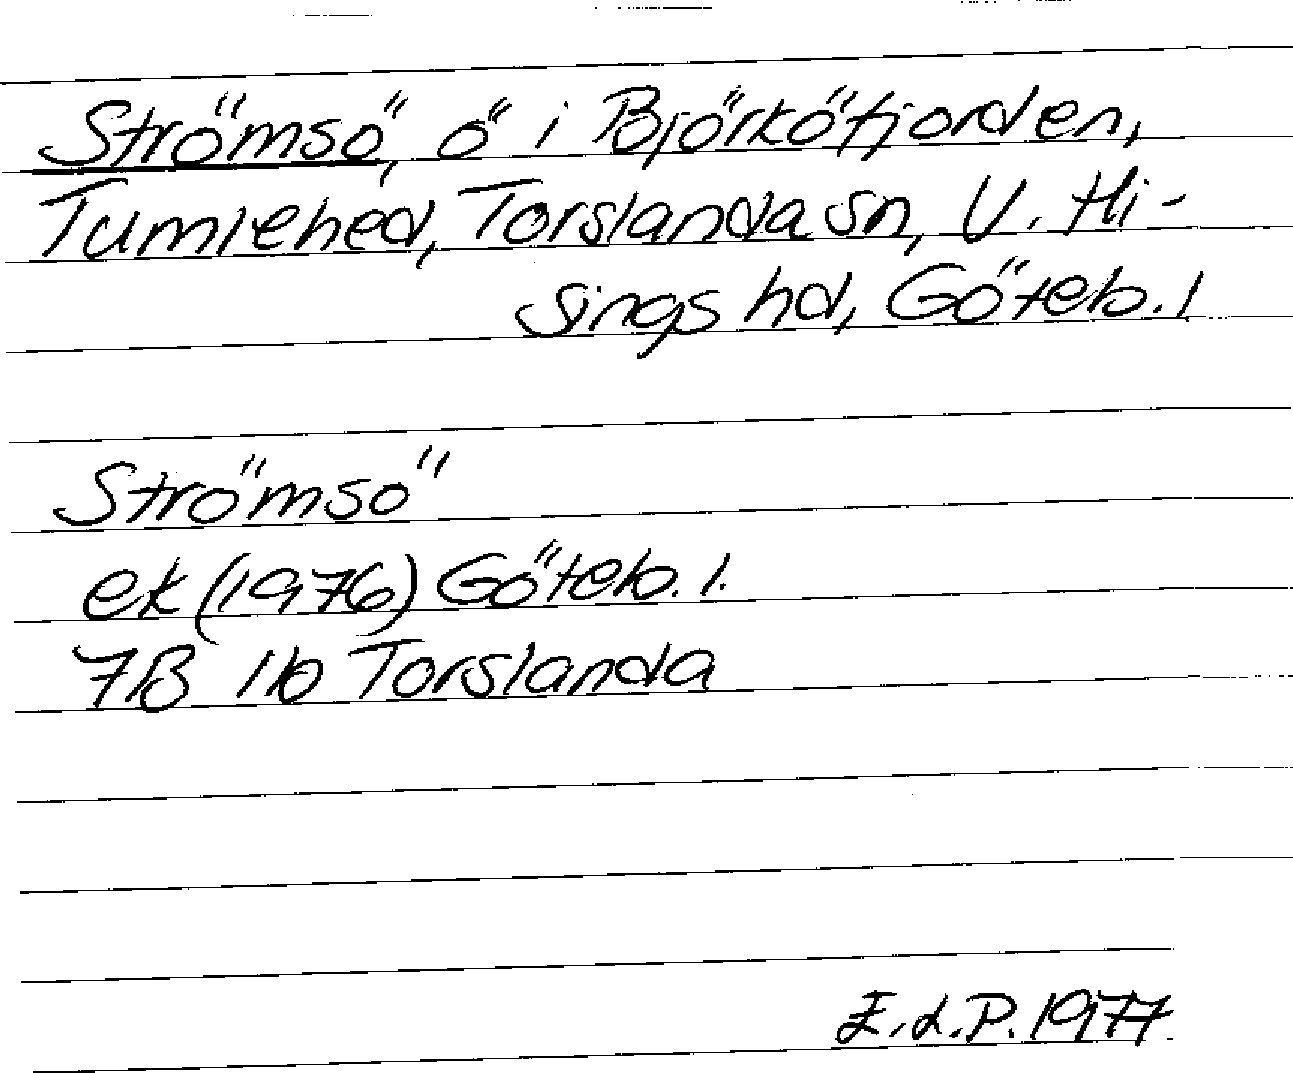 Strömsö, ö i Björköfjorden,
Tumlehed, Torslanda sn, V. Hi-
sings hd, Göteb. l
Strömsö
ek (1976) Göteb. l.
7B 1b Torslanda
E.L.P. 1977